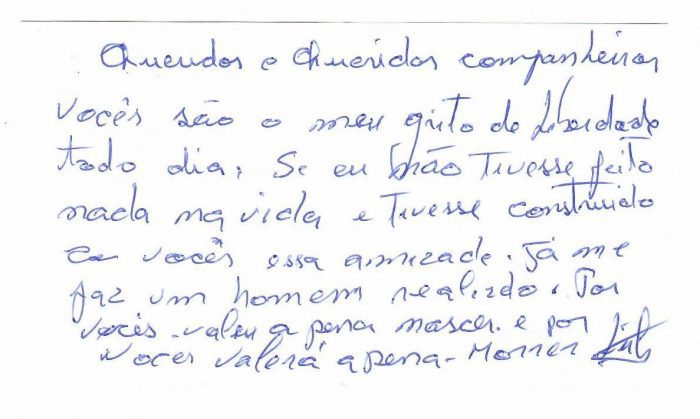 Queridos e Queridas companheiros
vocês são o meu grito de liberdade
todo dia, Se eu não Tivesse feito
nada na vida e Tivesse construido
com vocês essa amizade. Já me
faz um homem realizdo. Por
vocês valeu a pena nascer e por
voces valerá a pena - Morrer